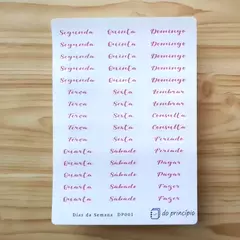 Segunda Quinta Domingo
Segunda Quinta Domingo
Segunda Quinta Domingo
Segunda Quinta Domingo
Terça Sexta Lembrar
Terça Sexta Lembrar
Terça Sexta Consulta
Terça Sexta Consulta
Terça Sexta Feriado
Quarta Sábado Feriado
Quarta Sábado Pagar
Quarta Sábado Pagar
Quarta Sábado Fazer
Quarta Sábado Fazer
Dias da Semana DP001
do princípio